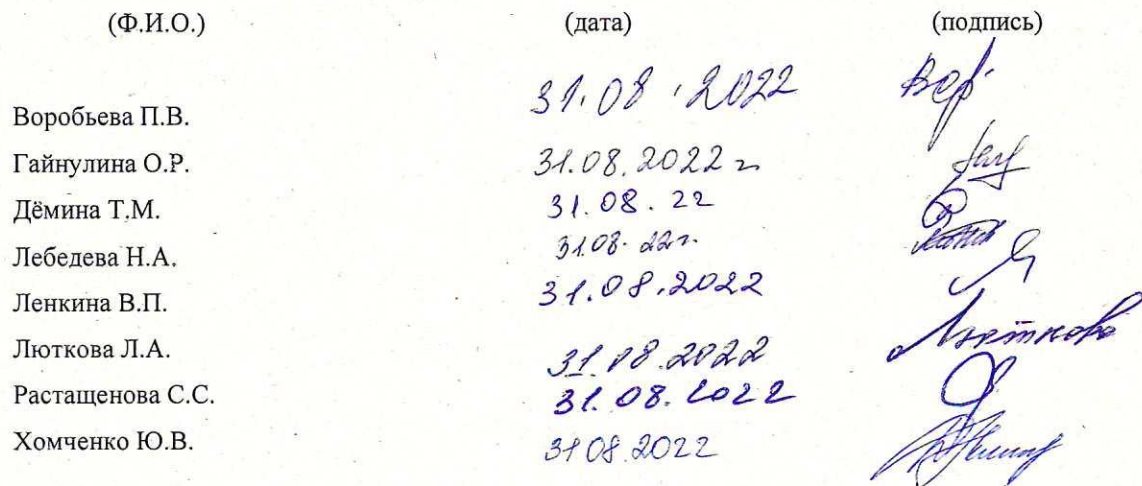 (Ф.И.О.) (дата) (подпись)
Воробьева П.В. 31.08.2022
Гайнулина О.Р. 31.08.2022 г
Дёмина Т.М. 31.08.22
Лебедева Н.А. 31.08.22г.
Ленкина В.П. 31.08.2022
Люткова Л.А. 31.08.2022 Люткова
Растащенова С.С. 31.08.2022
Хомченко Ю.В. 3108.2022